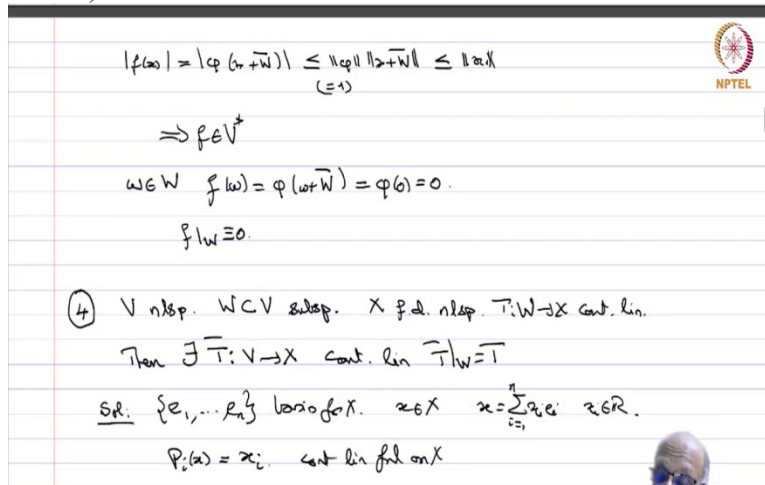 |f(x)| = |φ(x+W̅)| ≤ ‖φ‖ ‖x+W̅‖ ≤ ‖x‖
(=1)
NPTEL
⇒ f∈V*
w∈W f(w) = φ(w+W̅) = φ(0) = 0.
f|w ≡0.
④ V nlsp. W⊂V subsp. X f.d. nlsp. T:W→X cont. lin.
Then ∃ T̅: V→X cont. lin T̅|w = T
Sol: {e₁,... eₙ} basis for X. x∈X x = Σⁿᵢ₌₁ xᵢeᵢ xᵢ∈R.
Pᵢ(x) = xᵢ. cont lin fnl on X